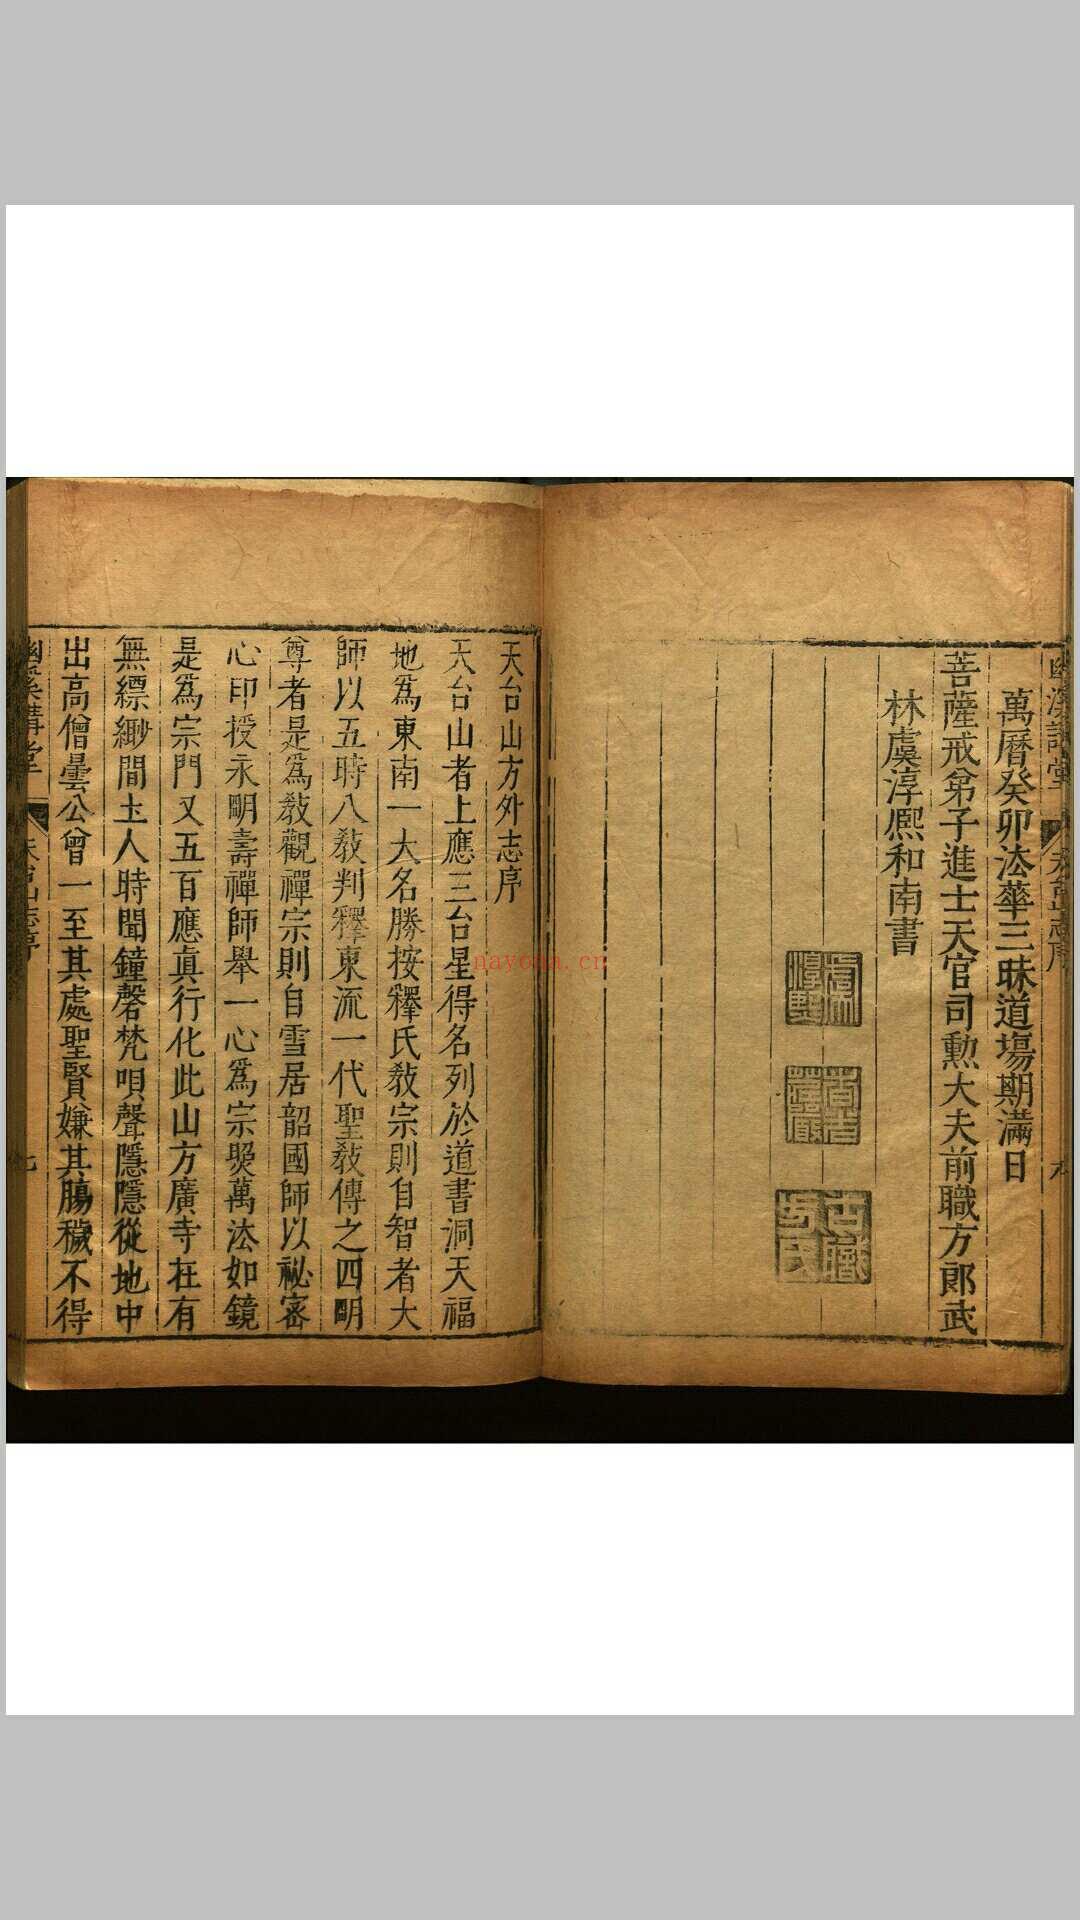 萬曆癸卯法華三昧道場期滿日
菩薩戒弟子進士天官司勲大夫前職方郎武
林虞淳熈和南書
天台山方外志序
天台山者上應三台星得名列於道書洞天福
地爲東南一大名勝按釋氏教宗則自智者大
師以五時八教判釋東流一代聖教傳之四明
尊者是爲教觀禪宗則自雪居韶國師以祕密
心印授永明壽禪師舉一心爲宗炤萬法如鏡
是爲宗門又五百應眞行化此山方廣寺在有
無縹緲間土人時聞鐘磬梵唄聲隱隱從地中
出高僧曇公曾一至其處聖賢嫌其腸穢不得
幽溪講堂
天台山志序
七
nayona.cn